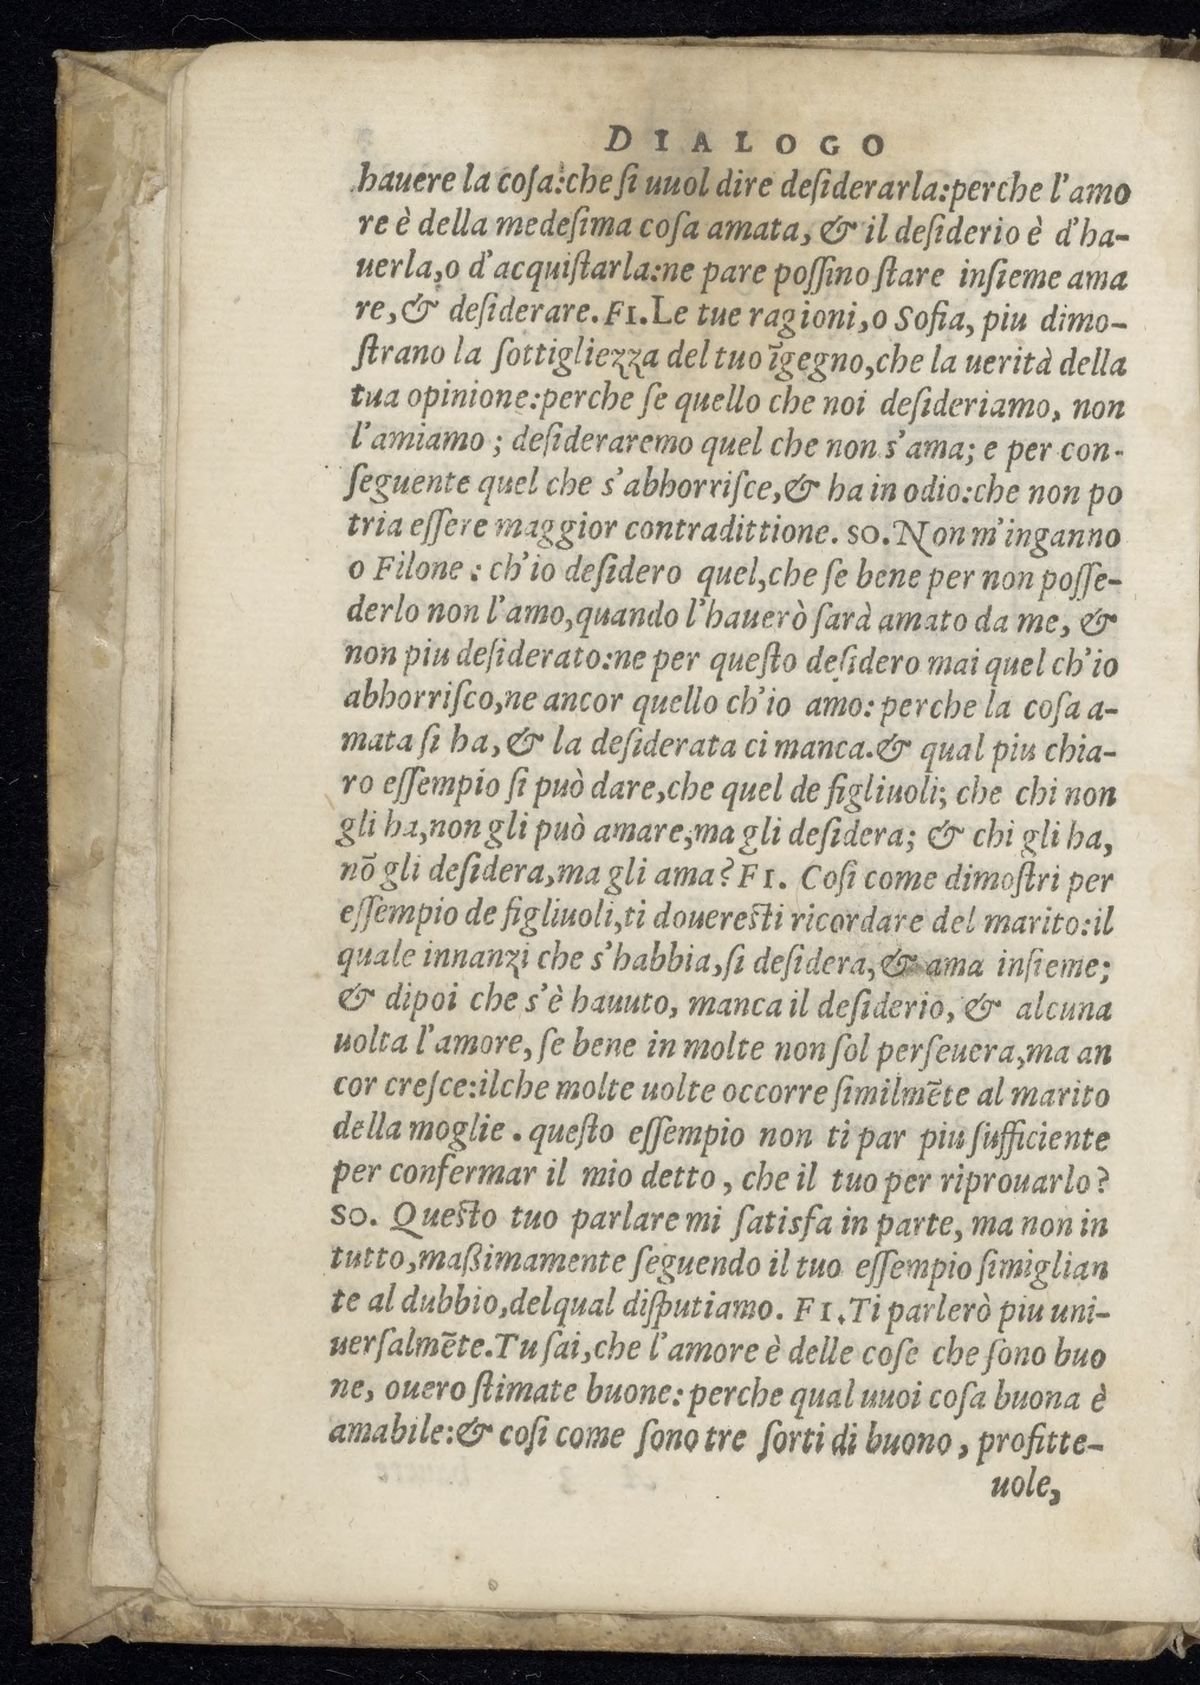 DIALOGO
hauere la coſa:che ſi uuol dire deſiderarla:perche l'amo
re è della medeſima coſa amata, & il deſiderio è d'ha-
uerla,o d'acquiſtarla:ne pare poſſino ſtare inſieme ama
re,& deſiderare.FI.Le tue ragioni,o Sofia, piu dimo-
ſtrano la ſottigliezza del tuo īgegno,che la uerità della
tua opinione:perche ſe quello che noi deſideriamo, non
l'amiamo; deſideraremo quel che non s'ama; e per con-
ſeguente quel che s'abhorriſce,& ha in odio:che non po
tria eſſere maggior contradittione. SO.Non m'inganno
o Filone: ch'io deſidero quel,che ſe bene per non poſſe-
derlo non l'amo,quando l'hauerò ſarà amato da me, &
non piu deſiderato:ne per queſto deſidero mai quel ch'io
abhorriſco,ne ancor quello ch'io amo: perche la coſa a-
mata ſi ha, & la deſiderata ci manca.& qual piu chia-
ro eſſempio ſi può dare,che quel de figliuoli; che chi non
gli ha,non gli può amare;ma gli deſidera; & chi gli ha,
nō gli deſidera,ma gli ama? FI. Coſi come dimoſtri per
eſſempio de figliuoli,ti douereſti ricordare del marito:il
quale innanzi che s'habbia,ſi deſidera,& ama inſieme;
& dipoi che s'è hauuto, manca il deſiderio, & alcuna
uolta l'amore, ſe bene in molte non ſol perſeuera,ma an
cor creſce:ilche molte uolte occorre ſimilmēte al marito
della moglie. queſto eſſempio non ti par piu ſufficiente
per confermar il mio detto, che il tuo per riprouarlo?
SO. Queſto tuo parlare mi ſatisfa in parte, ma non in
tutto,maßimamente ſeguendo il tuo eſſempio ſimiglian
te al dubbio,delqual diſputiamo. FI.Ti parlerò piu uni-
uerſalmēte.Tu ſai,che l'amore è delle coſe che ſono buo
ne, ouero ſtimate buone: perche qual uuoi coſa buona è
amabile:& coſi come ſono tre ſorti di buono, profitte-
uole,